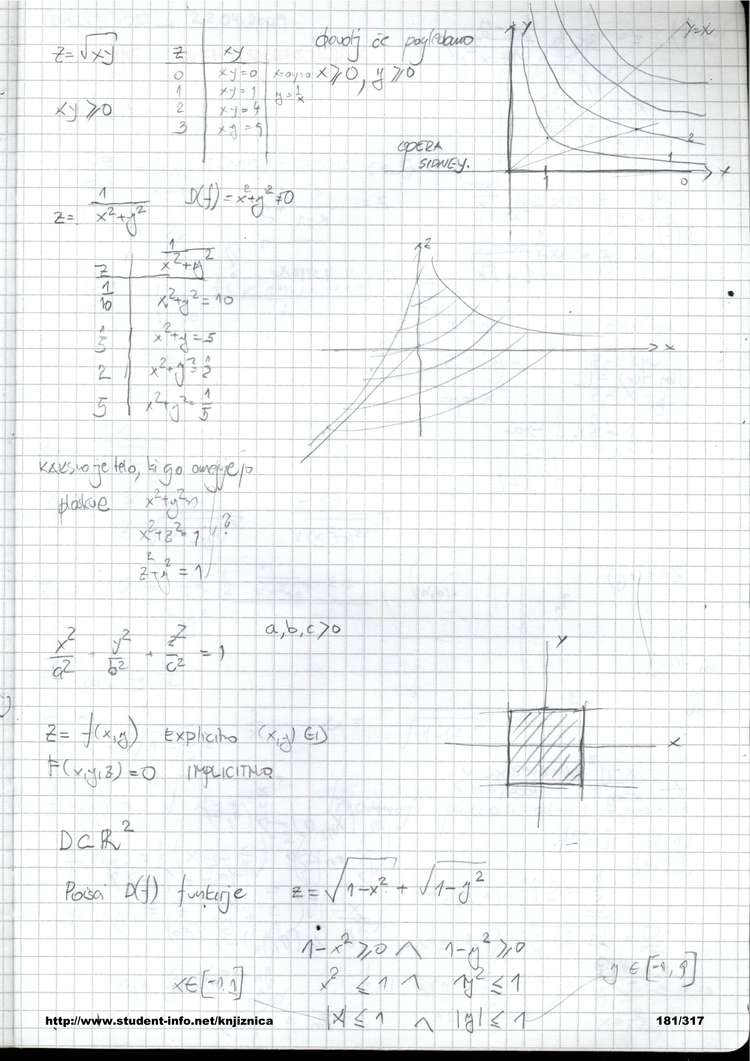 z = √xy
z | xy
0 | xy=0 x=0 y=0
1 | xy=1 y=1/x
2 | xy=4
3 | xy=9
dovolj če pogledamo
x≥0, y≥0
xy ≥ 0
OPERA
SIDNEY.
y
y=x
2
1
0
1
x
z = 1/(x²+y²) D(f) = x²+y² ≠ 0
z | 1/(x²+y²)
1/10 | x²+y² = 10
1/5 | x²+y = 5
2 | x²+y² = 1/2
5 | x²+y² = 1/5
z
x
kakšno je telo, ki go
ploskve x²+y²=1
x²+z²=1 ?
z²+y² = 1
x²/a² y²/b² + z²/c² = 1 a,b,c>0
z = f(x,y) EXPLICITNO (x,y) ∈ D
F(x,y,z) = 0 IMPLICITNO
y
x
D⊂ℝ²
D(f) funkcije z = √1-x² + √1-y²
1-x² ≥ 0 ∧ 1-y² ≥ 0
x∈[-1,1] x² ≤ 1 ∧ y² ≤ 1 y∈[-1,1]
|x| ≤ 1 ∧ |y| ≤ 1
http://www.student-info.net/knjiznica 181/317